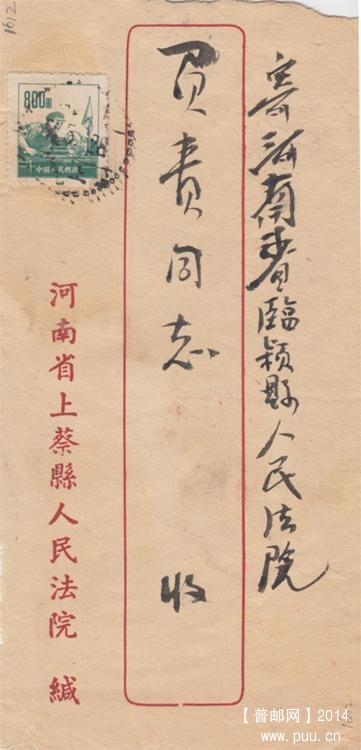 寄河南省臨颍縣人民法院
负责同志 收
河南省上蔡縣人民法院 缄
800圆
中国人民邮政
1612
1612
【普邮网】2014
www.puu.cn